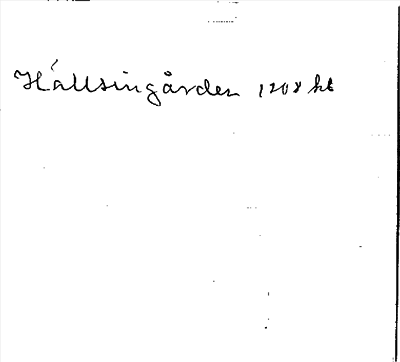 Hällsingården 1208 kt